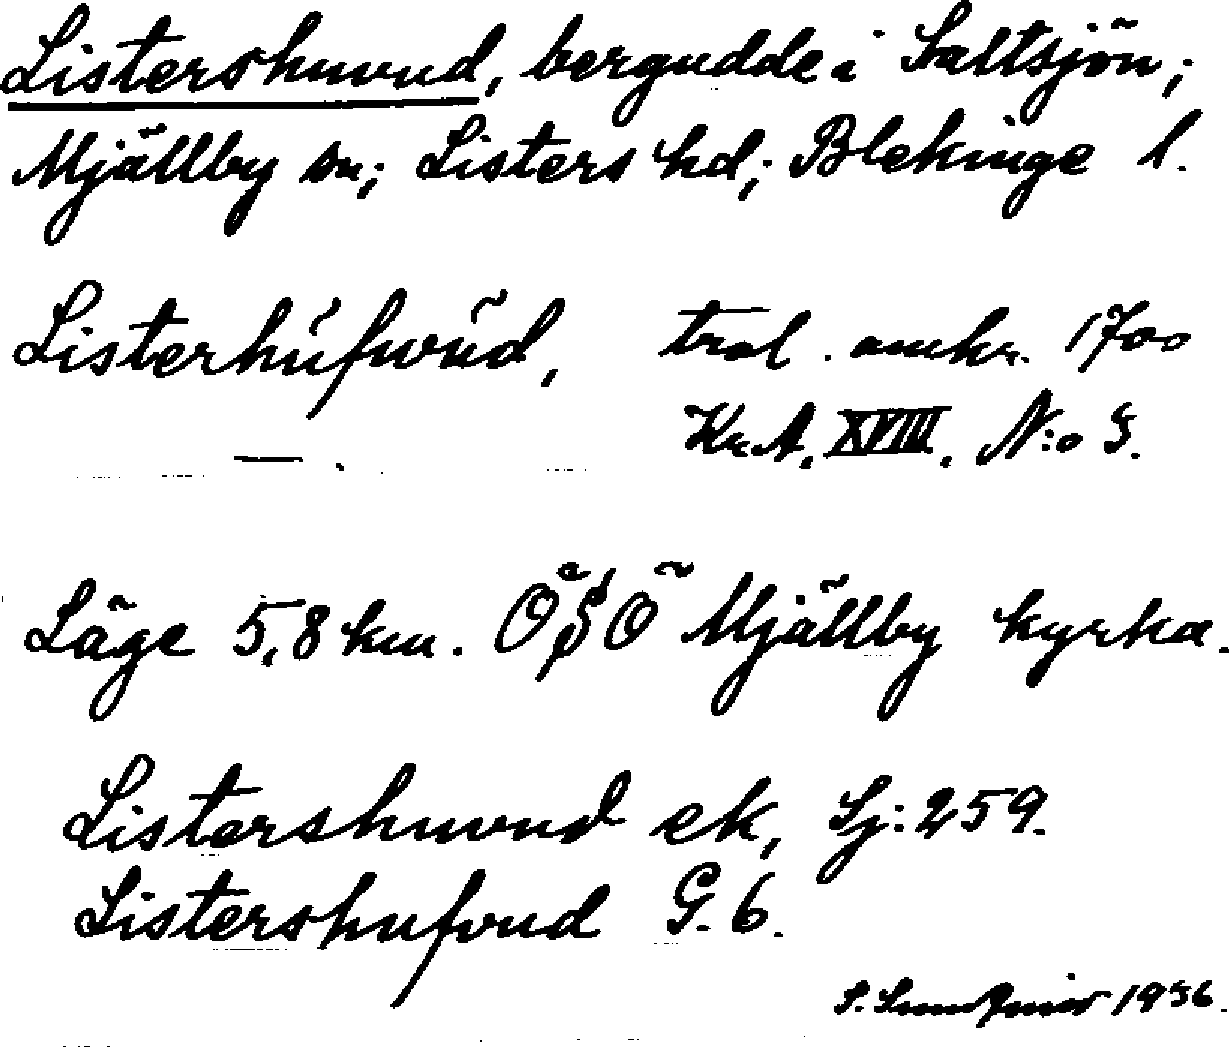 Listershuvud, bergudde i Saltsjön;
Mjällby sn; Listers hd; Blekinge l.
Listerhúfwud, trol. omkr. 1700
Kr.A. XVIII. N:o 3.
Läge 5,8 km. OSO Mjällby kyrka.
Listershuvud ek, Sj: 259.
Listershufvud G. 6.
S. 1936.